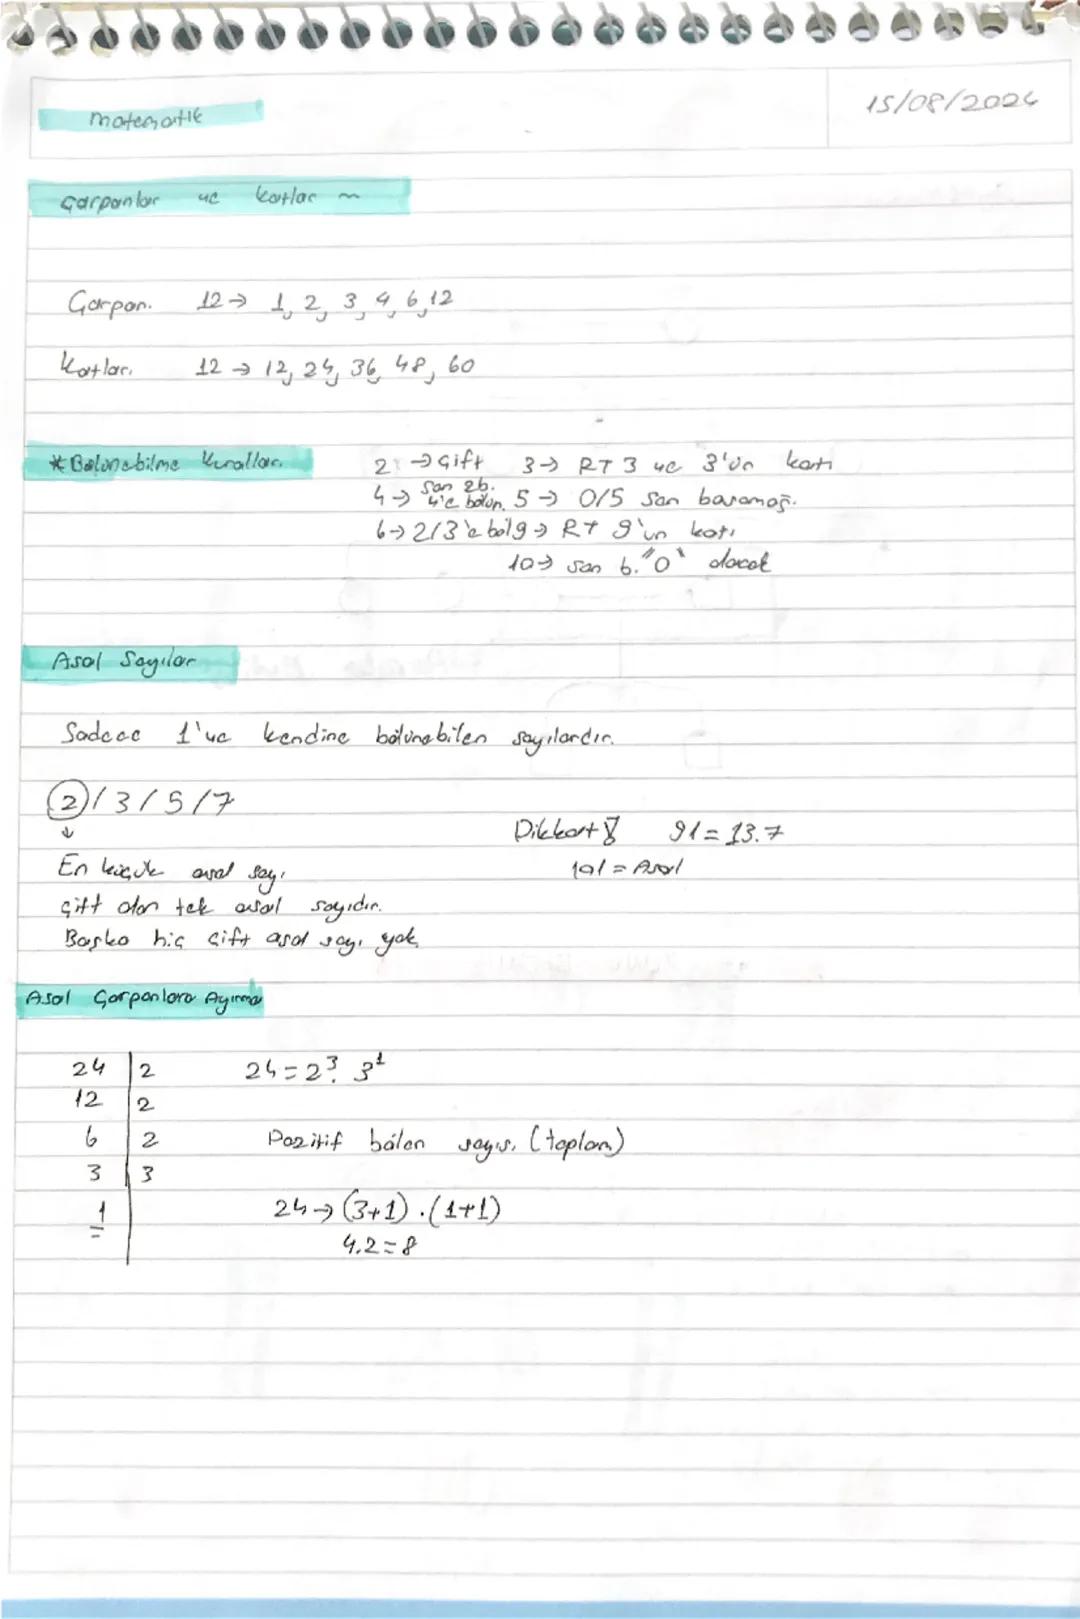 matematik
15/08/2024
Çarpanlar ve Katlar ~
Çarpan. 12 → 1, 2, 3, 4, 6, 12
Katları. 12 → 12, 24, 36, 48, 60
* Bölünebilme Kuralları.
2 → Çift 3 → RT 3 ve 3'ün katı
4 → son 2b. 4'e bölün. 5 → 0/5 son basamağ.
6 → 2/3'e böl 9 → RT 9'un katı
10 → son b. "0" olacak
Asal Sayılar
Sadece 1 've kendine bölünebilen sayılardır.
2 / 3 / 5 / 7
↓
Dikkat! 91 = 13.7
101 = Asal
En küçük asal sayı
çift olan tek asal sayıdır.
Başka hiç çift asal sayı yok
Asal Çarpanlara Ayırma
24 | 2 24 = 2³. 3¹
12 | 2
6 | 2 Pozitif bölen sayısı (toplam)
3 | 3
1 | 24 → (3+1) . (1+1)
4.2 = 8